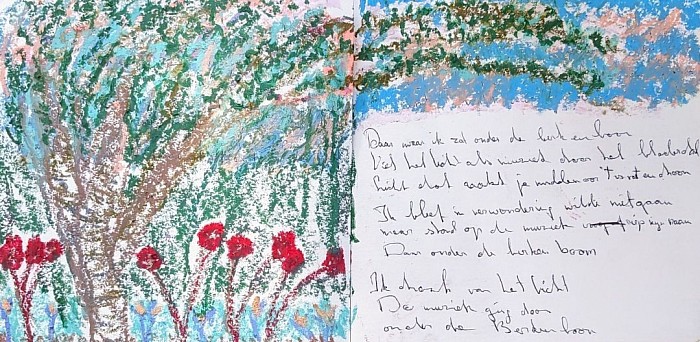 Daar waar ik zat onder de berkenboom
Viel het licht als muziek door het bladerdak
licht dat raakt je midden oor 't
Ik bleef in verwondering wilde niet gaan
maar stond op de muziek
Daar onder de berken boom
Ik dronk van het licht
De muziek ging door
onder de Berkenboom